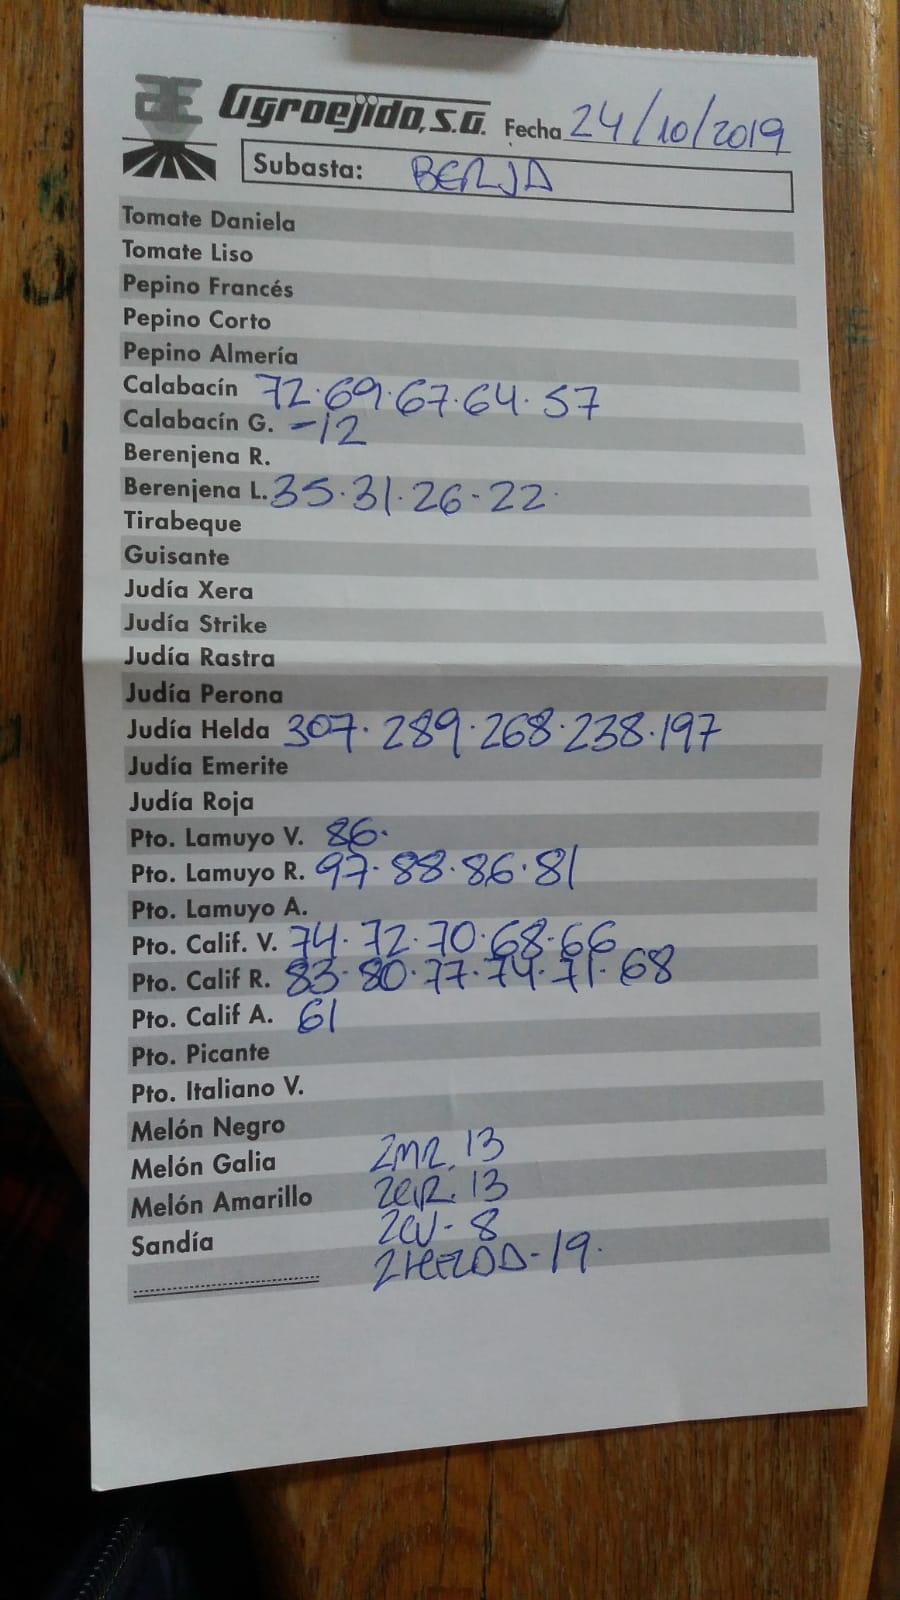 Agroejido, S.A. Fecha 24/10/2019
Subasta: BERJA
Tomate Daniela
Tomate Liso
Pepino Francés
Pepino Corto
Pepino Almería
Calabacín 72·69·67·64·57
Calabacín G. -12
Berenjena R.
Berenjena L. 35·31·26-22·
Tirabeque
Guisante
Judía Xera
Judía Strike
Judía Rastra
Judía Perona
Judía Helda 307·289·268·238·197
Judía Emerite
Judía Roja
Pto. Lamuyo V. 86·
Pto. Lamuyo R. 97·88·86·81
Pto. Lamuyo A.
Pto. Calif. V. 74·72·70·68·66
Pto. Calif R. 83·80·77·74·71·68
Pto. Calif A. 61
Pto. Picante
Pto. Italiano V.
Melón Negro
Melón Galia 2MR. 13
Melón Amarillo 13
Sandía 2CV- 8
-19.